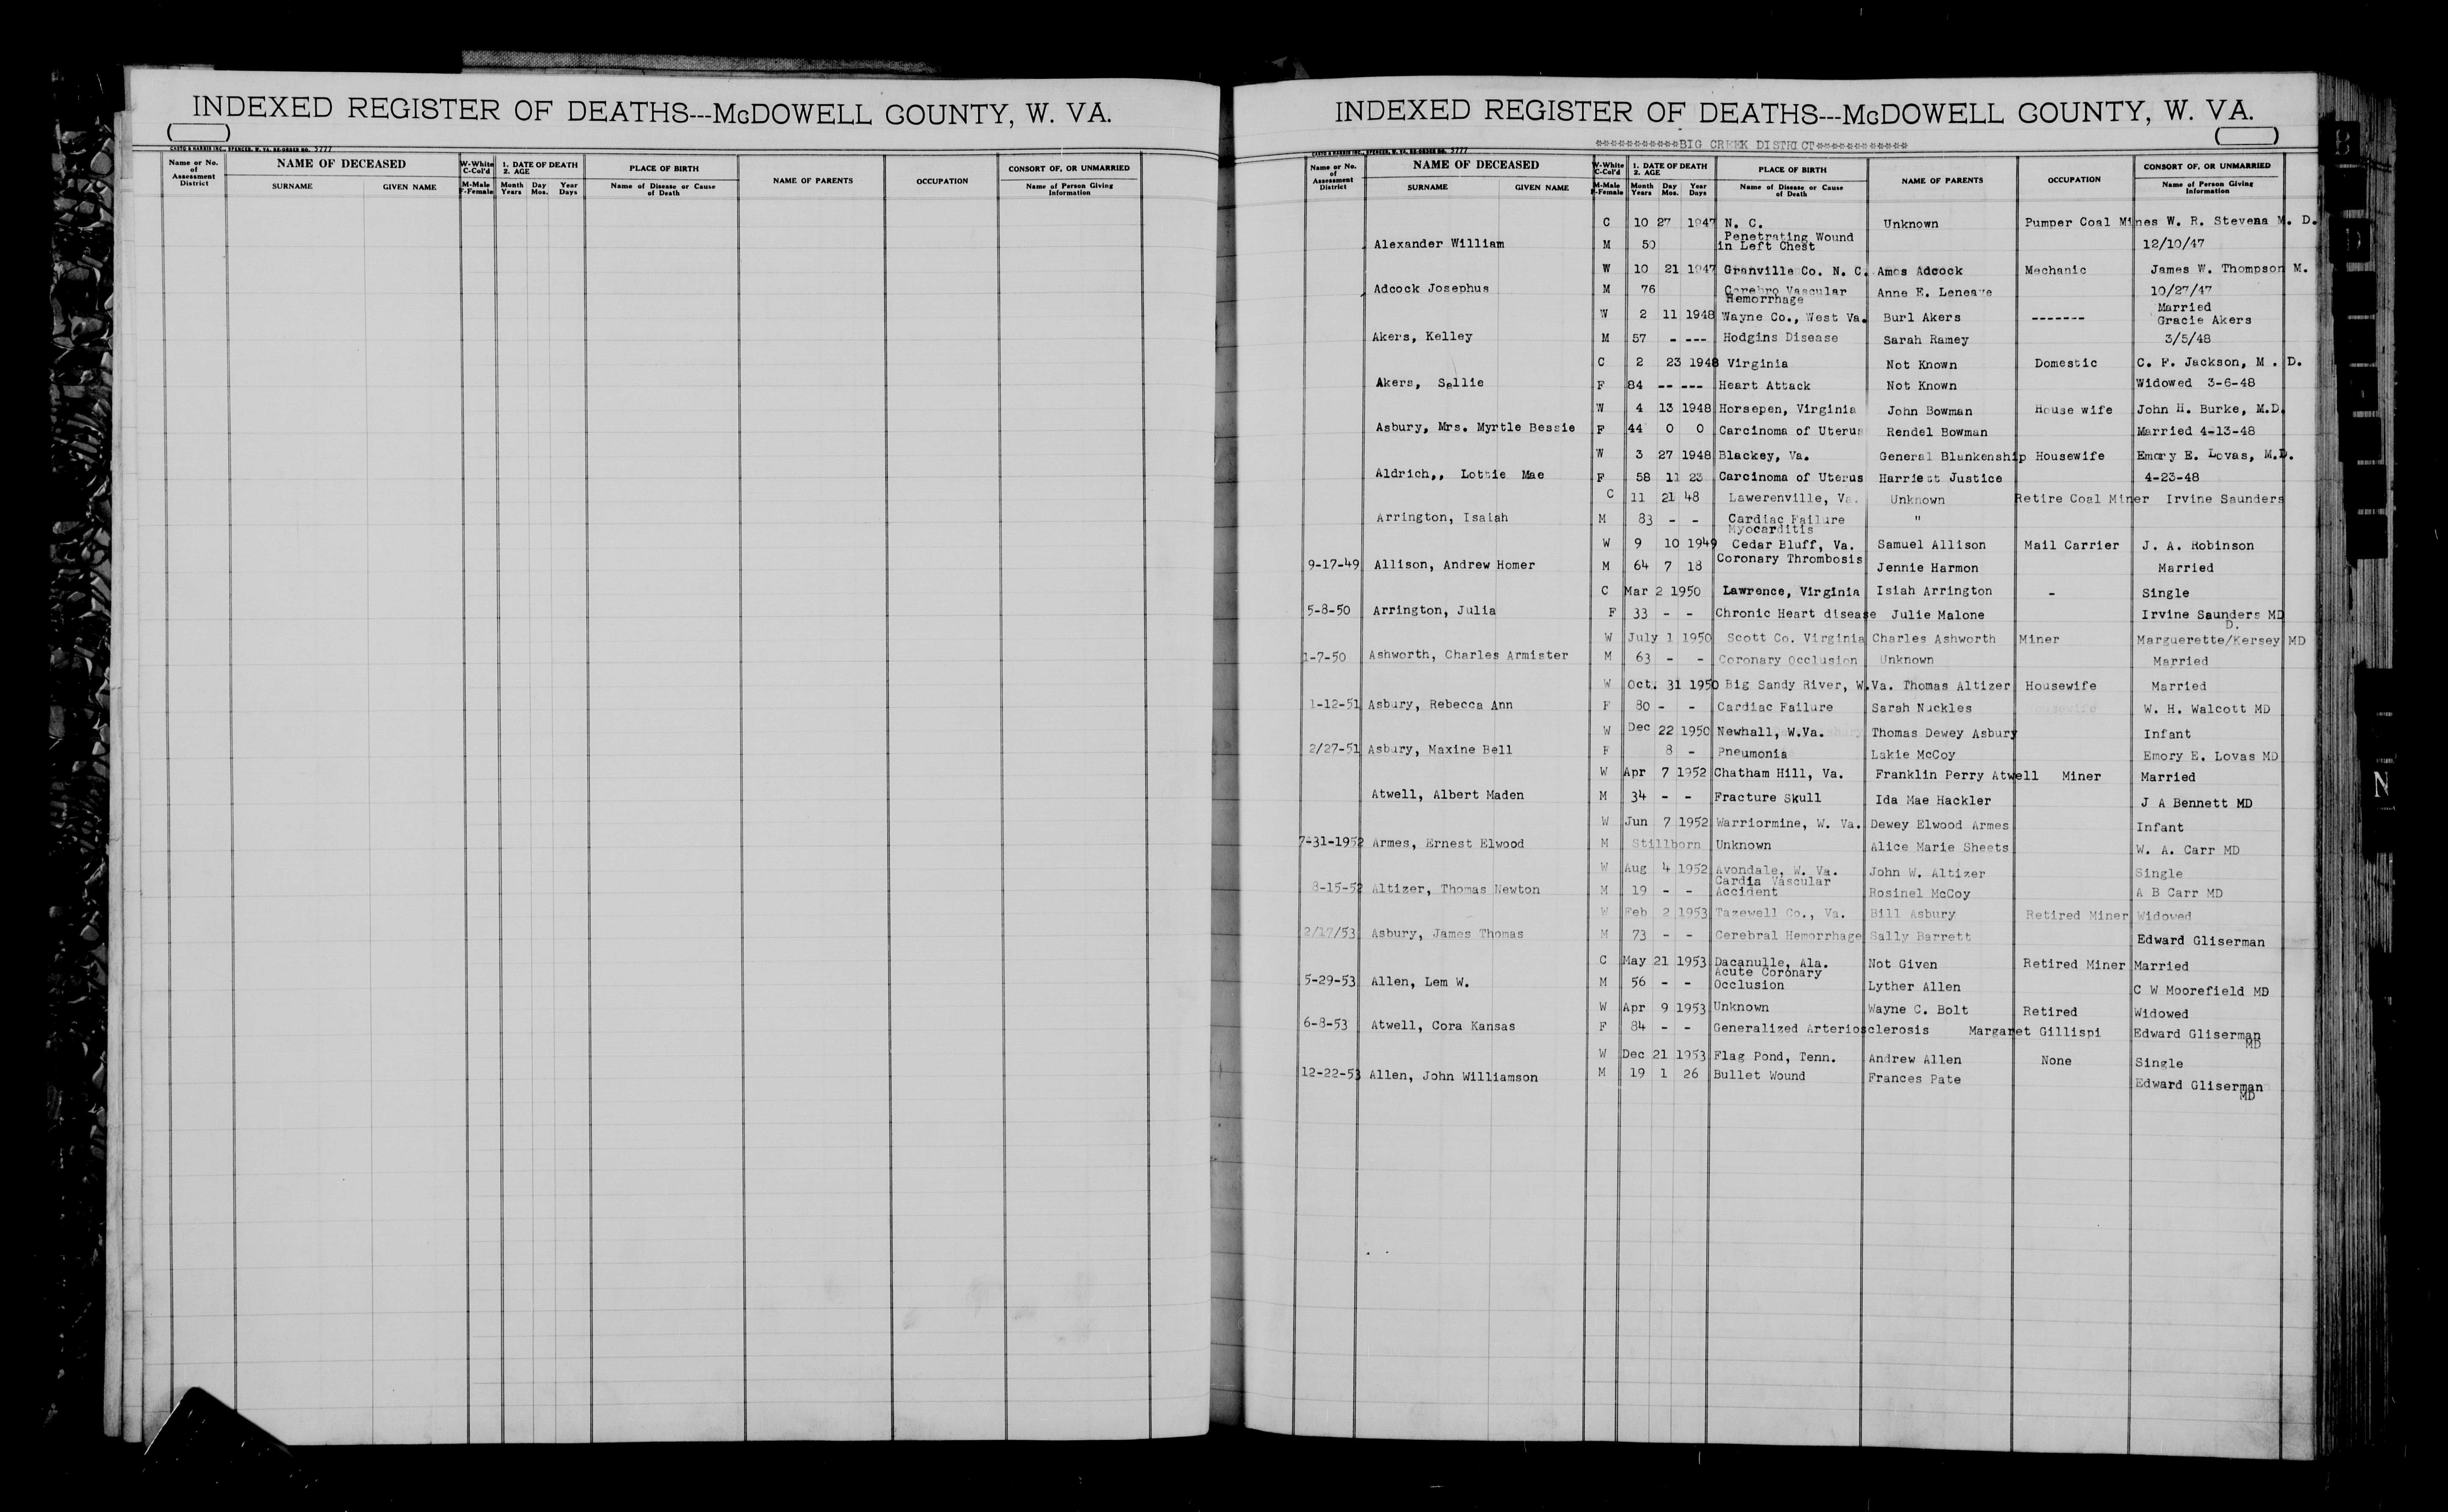 INDEXED REGISTER OF DEATHS---McDOWELL COUNTY, W. VA.
CASTO & HARRIS INC., SPENCER, W. VA. RE-ORDER NO. 5777
Name or No. of Assessment District
NAME OF DECEASED
SURNAME GIVEN NAME
W-White C-Col'd
M-Male F-Female
1. DATE OF DEATH
2. AGE
Month Day Year
Years Mos. Days
PLACE OF BIRTH
Name of Disease or Cause of Death
NAME OF PARENTS
OCCUPATION
CONSORT OF, OR UNMARRIED
Name of Person Giving Information
INDEXED REGISTER OF DEATHS---McDOWELL COUNTY, W. VA.
***********BIG CREEK DISTRICT************
CASTO & HARRIS INC., SPENCER, W. VA. RE-ORDER NO. 5777
Name or No. of Assessment District
NAME OF DECEASED
SURNAME GIVEN NAME
W-White C-Col'd
M-Male F-Female
1. DATE OF DEATH
2. AGE
Month Day Year
Years Mos. Days
PLACE OF BIRTH
Name of Disease or Cause of Death
NAME OF PARENTS
OCCUPATION
CONSORT OF, OR UNMARRIED
Name of Person Giving Information
C 10 27 1947 N. C. Unknown Pumper Coal Mines W. R. Stevens M. D.
Penetrating Wound
Alexander William M 50 in Left Chest 12/10/47
W 10 21 1947 Granville Co. N. C. Amos Adcock Mechanic James W. Thompson M.
Adcock Josephus M 76 Cerebro Vascular Anne E. Leneave 10/27/47
Hemorrhage
Married
W 2 11 1948 Wayne Co., West Va. Burl Akers ------- Gracie Akers
Akers, Kelley M 57 - --- Hodgins Disease Sarah Ramey 3/5/48
C 2 23 1948 Virginia Not Known Domestic C. F. Jackson, M . D.
Akers, Sallie F 84 -- --- Heart Attack Not Known Widowed 3-6-48
W 4 13 1948 Horsepen, Virginia John Bowman House wife John H. Burke, M.D.
Asbury, Mrs. Myrtle Bessie F 44 0 0 Carcinoma of Uterus Rendel Bowman Married 4-13-48
W 3 27 1948 Blackey, Va. General Blankenship Housewife Emory E. Lovas, M.D.
Aldrich,, Lottie Mae F 58 11 23 Carcinoma of Uterus Harriett Justice 4-23-48
C 11 21 48 Lawerenville, Va. Unknown Retire Coal Miner Irvine Saunders
Arrington, Isaiah M 83 - - Cardiac Failure "
Myocarditis
W 9 10 1949 Cedar Bluff, Va. Samuel Allison Mail Carrier J. A. Robinson
9-17-49 Allison, Andrew Homer M 64 7 18 Coronary Thrombosis Jennie Harmon Married
C Mar 2 1950 Lawrence, Virginia Isiah Arrington - Single
5-8-50 Arrington, Julia F 33 - - Chronic Heart disease Julie Malone Irvine Saunders MD
D.
W July 1 1950 Scott Co. Virginia Charles Ashworth Miner Marguerette/Kersey MD
1-7-50 Ashworth, Charles Armister M 63 - - Coronary Occlusion Unknown Married
W Oct. 31 1950 Big Sandy River, W.Va. Thomas Altizer Housewife Married
1-12-51 Asbury, Rebecca Ann F 80 - - Cardiac Failure Sarah Nuckles W. H. Walcott MD
W Dec 22 1950 Newhall, W.Va. Thomas Dewey Asbury Infant
2/27-51 Asbury, Maxine Bell F 8 - Pneumonia Lakie McCoy Emory E. Lovas MD
W Apr 7 1952 Chatham Hill, Va. Franklin Perry Atwell Miner Married
Atwell, Albert Maden M 34 - - Fracture Skull Ida Mae Hackler J A Bennett MD
W Jun 7 1952 Warriormine, W. Va. Dewey Elwood Armes Infant
7-31-1952 Armes, Ernest Elwood M Stillborn Unknown Alice Marie Sheets W. A. Carr MD
W Aug 4 1952 Avondale, W. Va. John W. Altizer Single
Cardia Vascular
8-15-52 Altizer, Thomas Newton M 19 - - Accident Rosinel McCoy A B Carr MD
W Feb 2 1953 Tazewell Co., Va. Bill Asbury Retired Miner Widowed
2/17/53 Asbury, James Thomas M 73 - - Cerebral Hemorrhage Sally Barrett Edward Gliserman
C May 21 1953 Dacanulle, Ala. Not Given Retired Miner Married
Acute Coronary
5-29-53 Allen, Lem W. M 56 - - Occlusion Lyther Allen C W Moorefield MD
W Apr 9 1953 Unknown Wayne C. Bolt Retired Widowed
6-8-53 Atwell, Cora Kansas F 84 - - Generalized Arteriosclerosis Margaret Gillispi Edward Gliserman
MD
W Dec 21 1953 Flag Pond, Tenn. Andrew Allen None Single
12-22-53 Allen, John Williamson M 19 1 26 Bullet Wound Frances Pate Edward Gliserman
MD
B
D
N